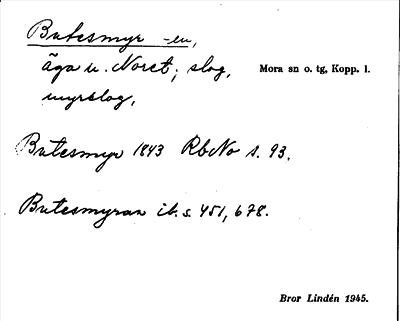 Butesmyr -en,
äga u. Noret; slog,
Mora sn o. tg, Kopp. l.
myrslog,
Butesmyr 1843 RbNo s. 93.
Butesmyran ib. s. 451, 678.
Bror Lindén 1945.